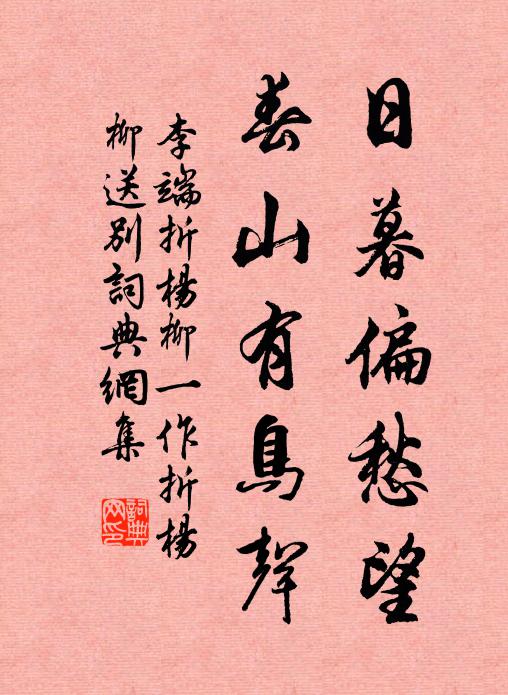 日暮偏愁望
春山有鳥聲
李端折楊柳一作折楊
柳送別詞典網集
詞典
网印